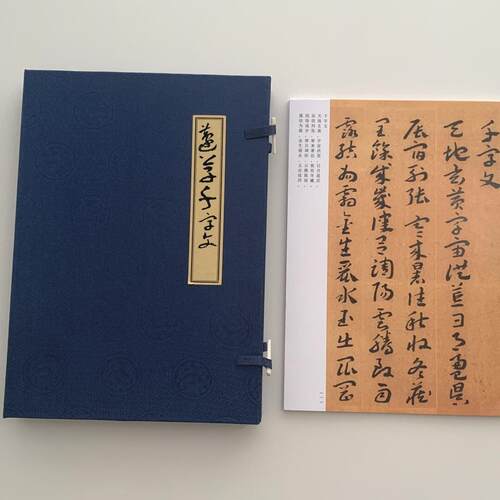 草千字文
千字文
天地玄黃宇宙洪荒日月盈昃
辰宿列張寒來暑往秋收冬藏
閏餘成歲律呂調陽雲騰致雨
露結為霜金生麗水玉出崑岡